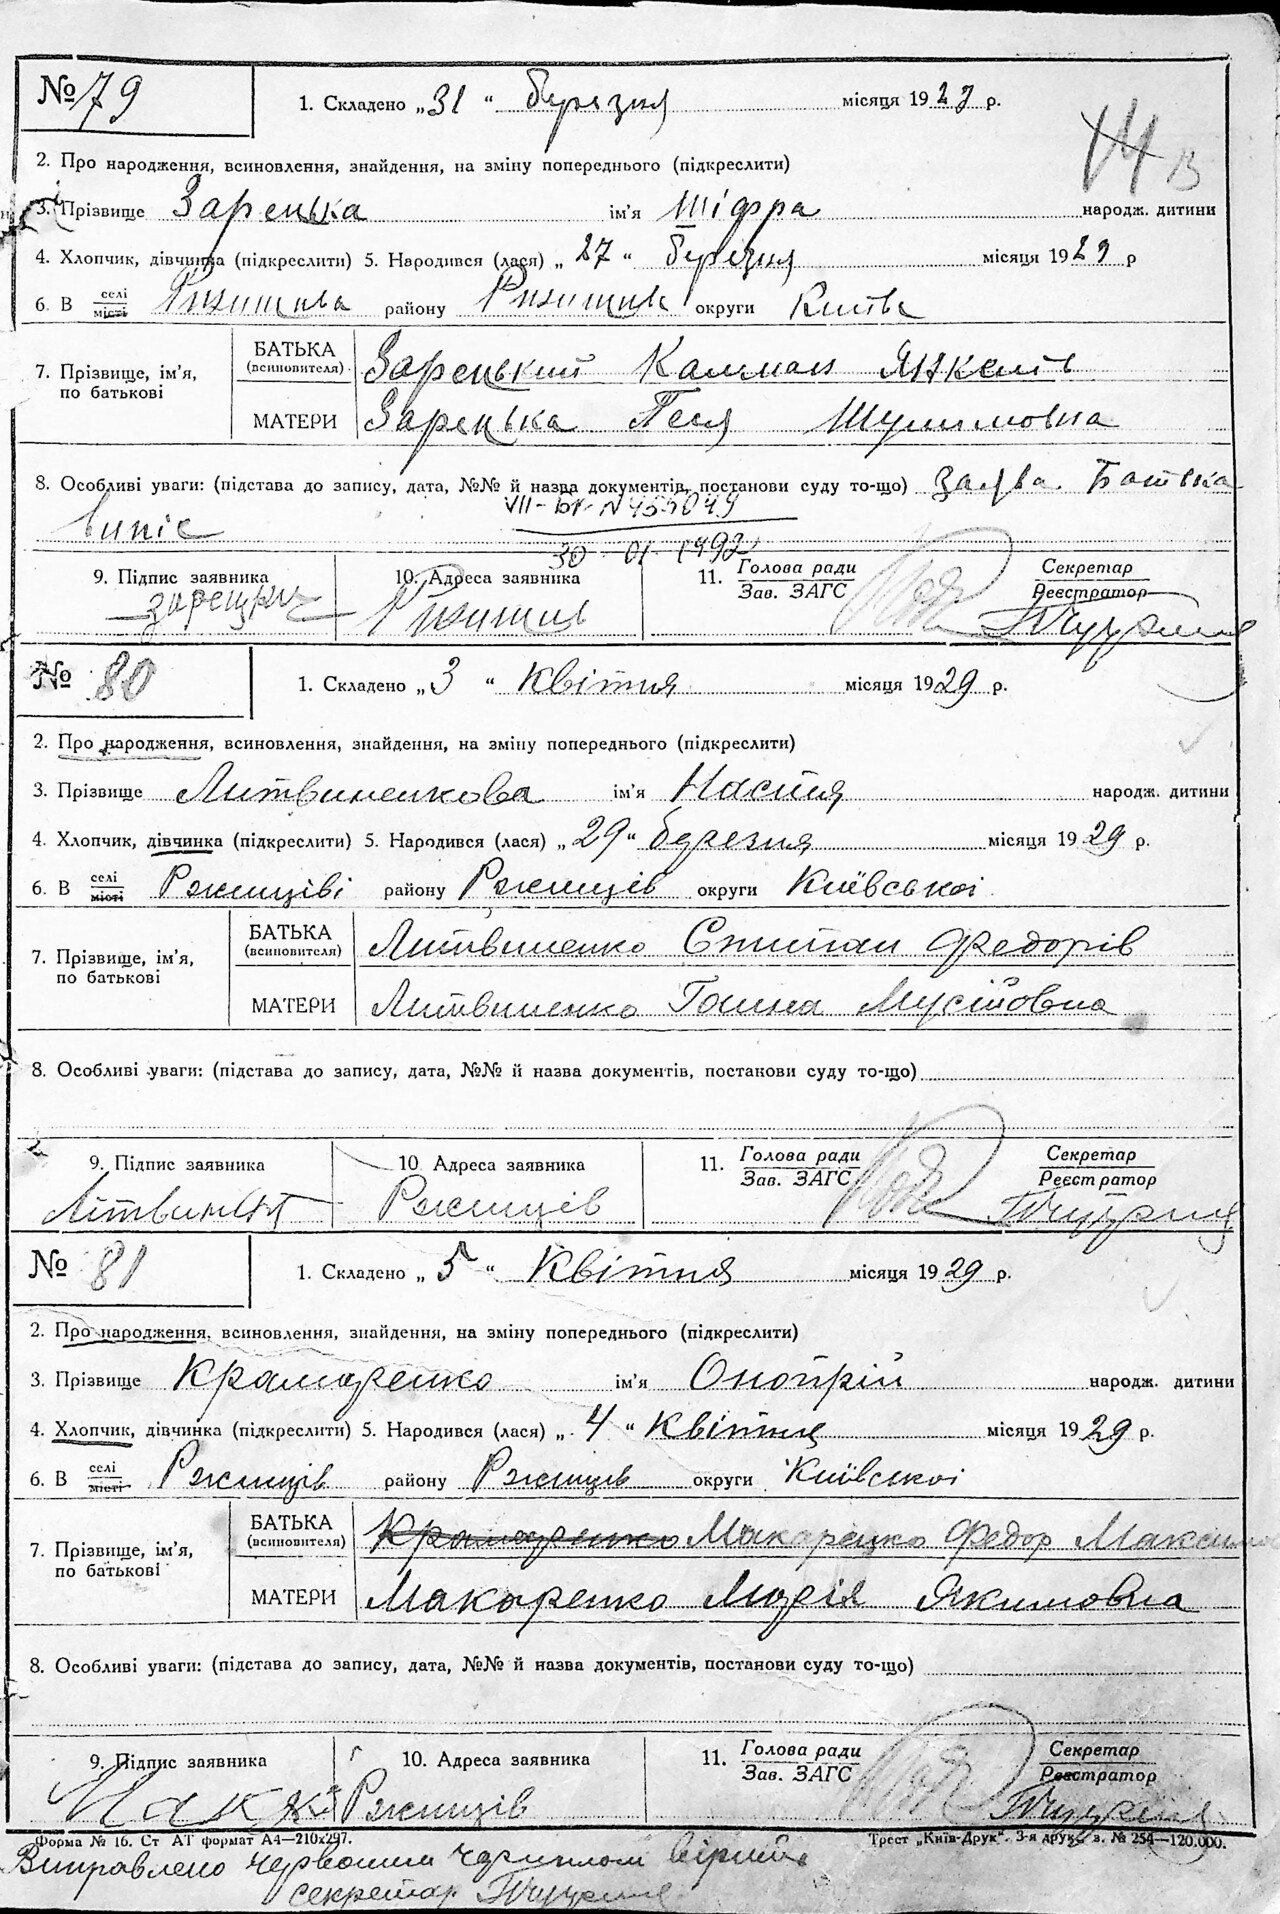 № 79
1. Складено „31“ березня місяця 1929 р.
2. Про народження, всиновлення, знайдення, на зміну попереднього (підкреслити)
3. Прізвище Зарецька ім'я Шіфра народж. дитини
4. Хлопчик, дівчинка (підкреслити) 5. Народився (лася) „27“ березня місяця 1929 р
6. В селі місті Ржищева району Ржищів округи Київ
7. Прізвище, ім'я, по батькові
БАТЬКА (всиновителя) Зарецький Калман Янкелів
МАТЕРИ Зарецька Песя Шулимовна
8. Особливі уваги: (підстава до запису, дата, №№ й назва документів, постанови суду то-що) заява Батька
VII-БК N 455049
30 01 1992
9. Підпис заявника
10. Адреса заявника
11. Голова ради Зав. ЗАГС
Секретар Реєстратор
Ржищів
№ 80
1. Складено „3“ Квітня місяця 1929 р.
2. Про народження, всиновлення, знайдення, на зміну попереднього (підкреслити)
3. Прізвище Литвиненкова ім'я Настя народж. дитини
4. Хлопчик, дівчинка (підкреслити) 5. Народився (лася) „29“ березня місяця 1929 р.
6. В селі місті Ржищіві району Ржищів округи Київської
7. Прізвище, ім'я, по батькові
БАТЬКА (всиновителя) Литвиненко Степан Федорів
МАТЕРИ Литвиненко Ганна Мусіївна
8. Особливі уваги: (підстава до запису, дата, №№ й назва документів, постанови суду то-що)
9. Підпис заявника
10. Адреса заявника
11. Голова ради Зав. ЗАГС
Секретар Реєстратор
Ржищів
№ 81
1. Складено „5“ Квітня місяця 1929 р.
2. Про народження, всиновлення, знайдення, на зміну попереднього (підкреслити)
3. Прізвище Крамаренко ім'я Онопрій народж. дитини
4. Хлопчик, дівчинка (підкреслити) 5. Народився (лася) „4“ Квітня місяця 1929 р.
6. В селі місті Ржищів району Ржищів округи Київської
7. Прізвище, ім'я, по батькові
БАТЬКА (всиновителя) Крамаренко Макаренко Федор Максимов
МАТЕРИ Макаренко Марія Якимовна
8. Особливі уваги: (підстава до запису, дата, №№ й назва документів, постанови суду то-що)
9. Підпис заявника
10. Адреса заявника
11. Голова ради Зав. ЗАГС
Секретар Реєстратор
Ржищів
Форма № 16. Ст АТ формат А4—210х297.
Трест „Київ-Друк“. 3-я друк. з. № 254—120.000.
Виправлено червоним чернилом
секретар